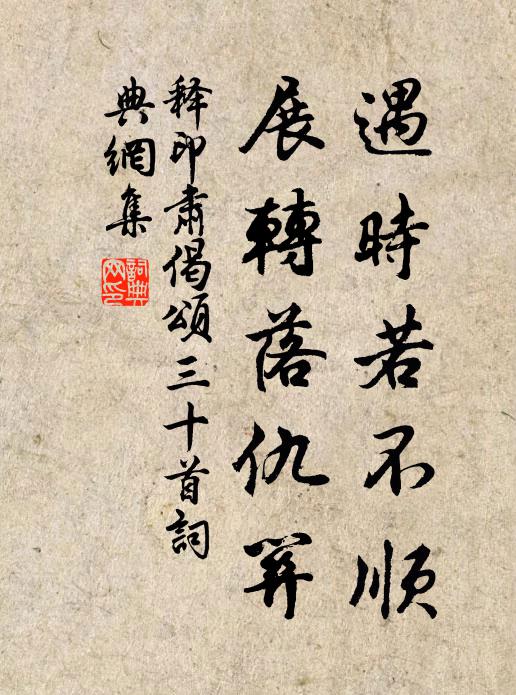 遇時若不順
展轉落仇
释印肅偈頌三十首詞
典網集
詞典
网印